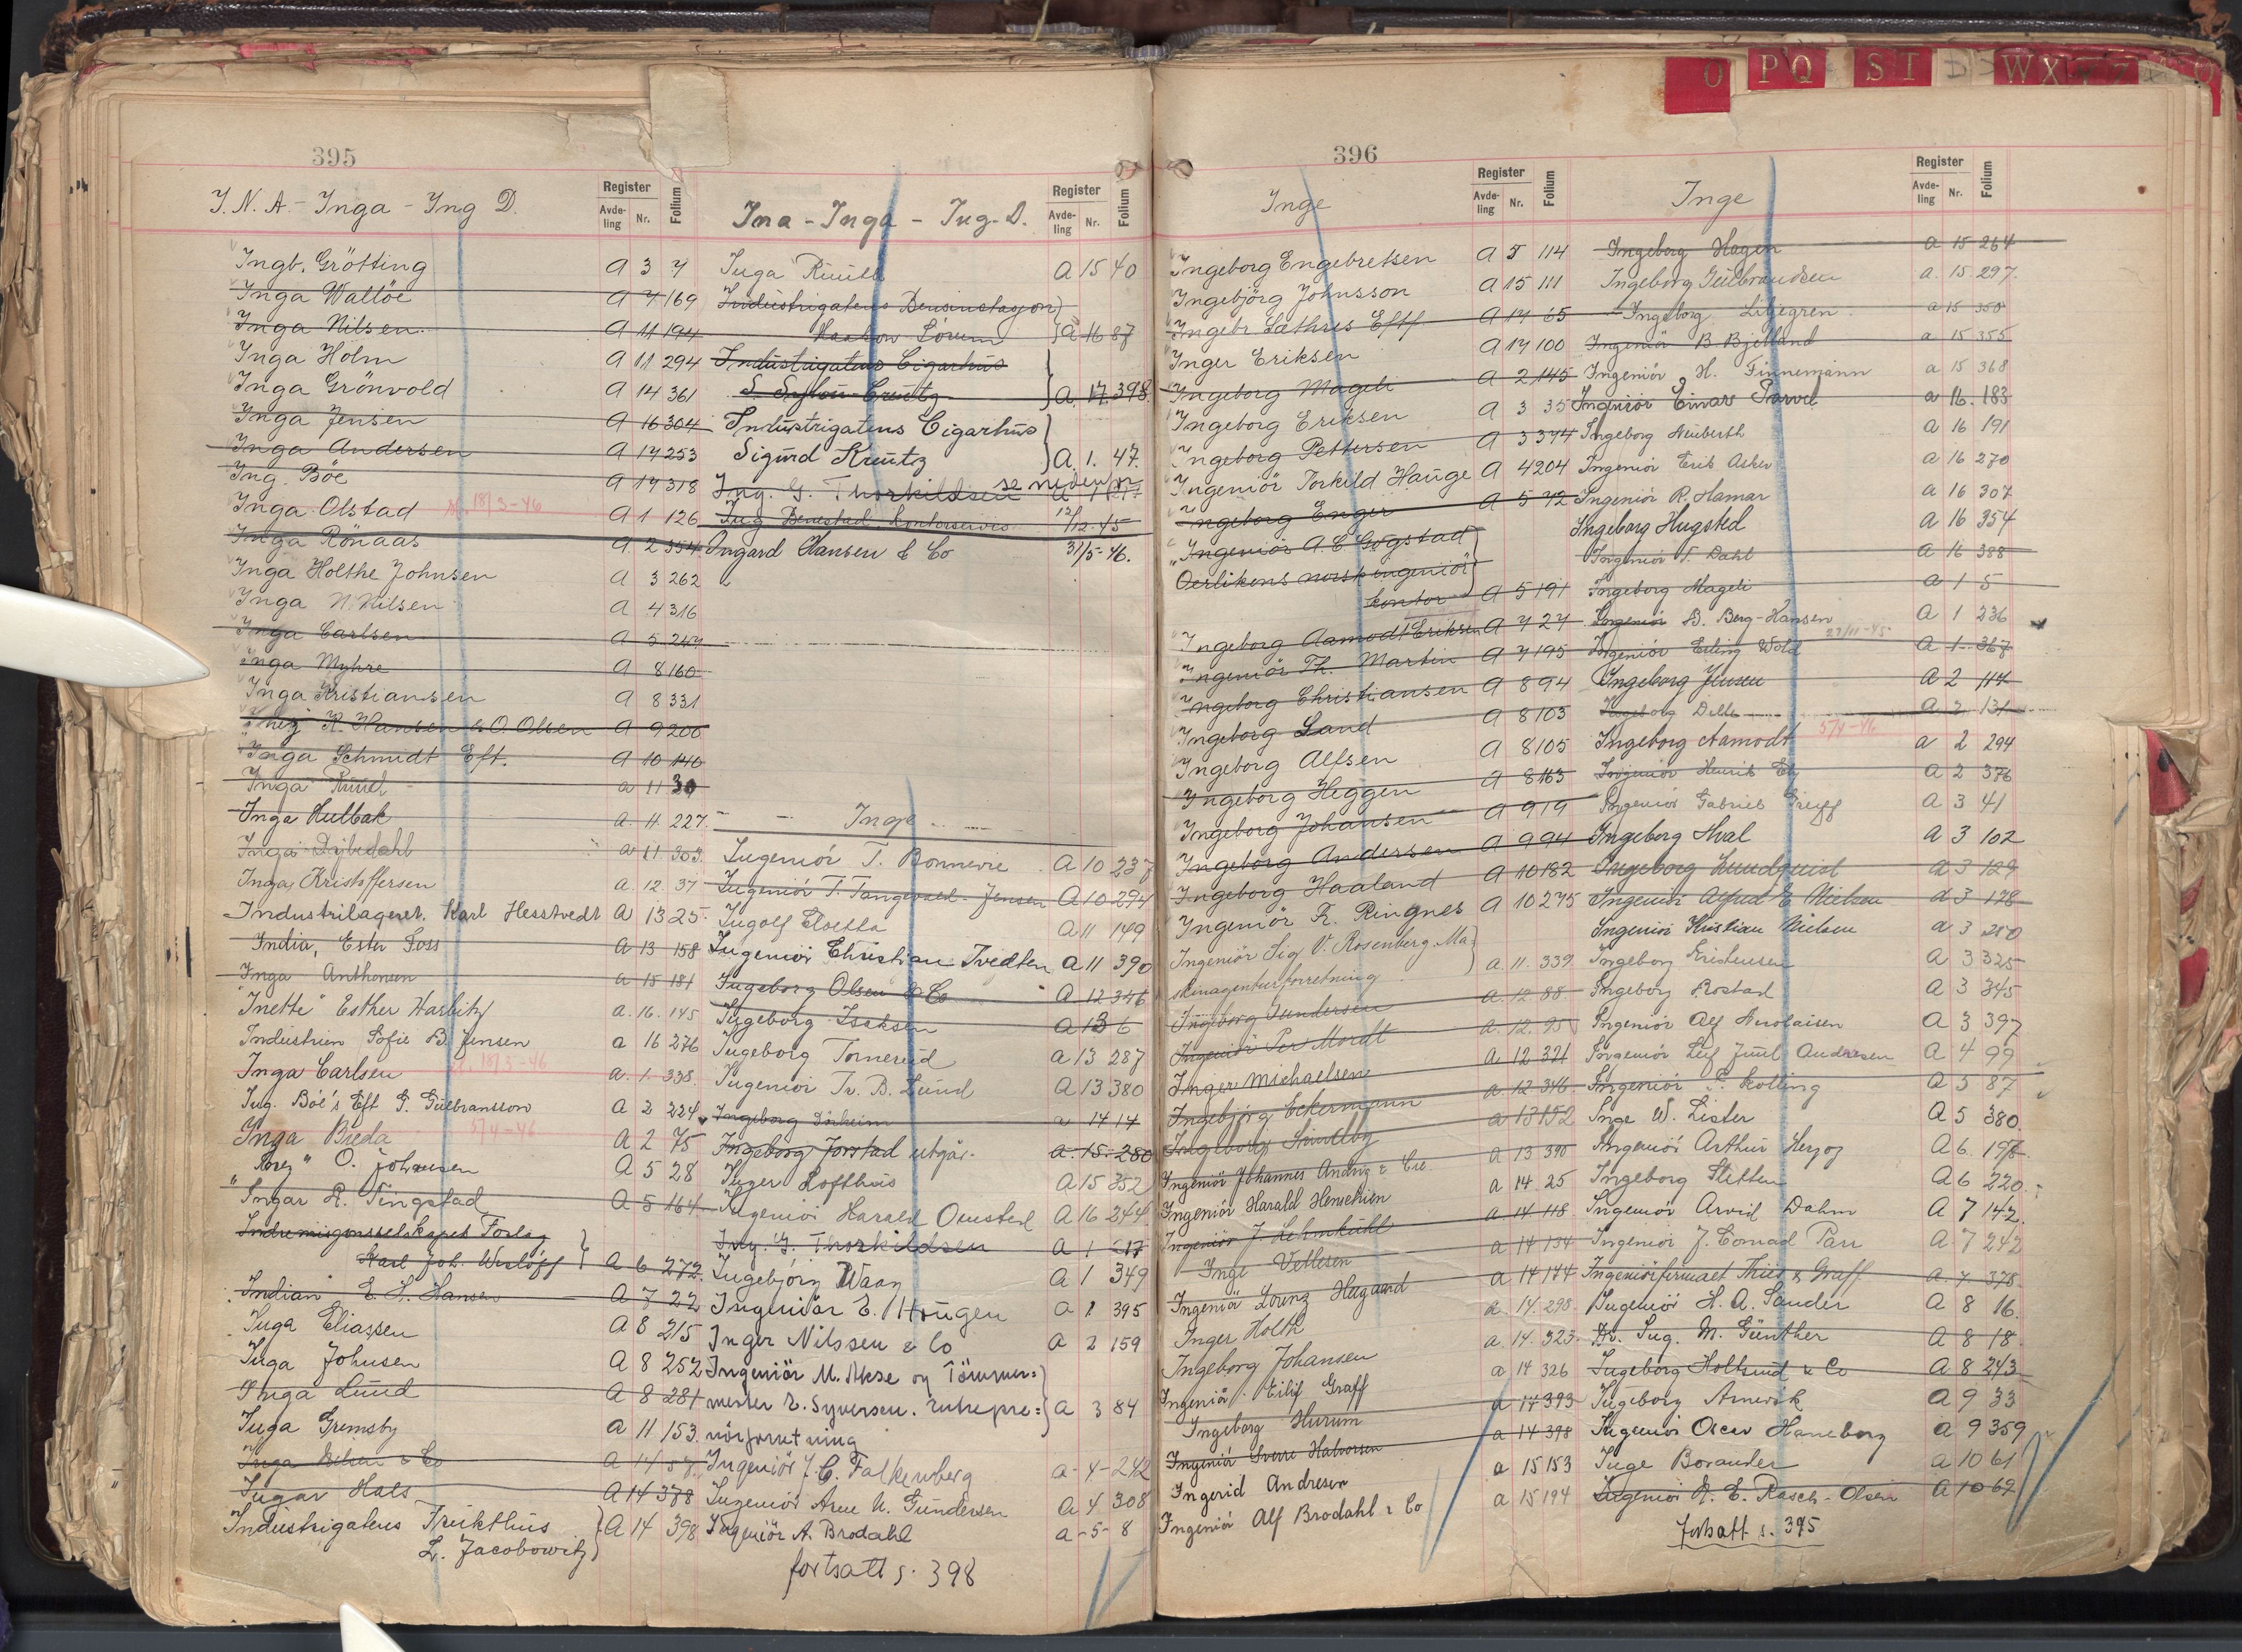 O PQ ST WX
395
I.N.A - Inga - Ing D.
Register
Avde-
ling
Nr.
Folium
Ingb. Grötting A 3 7
Inga Wallöe A 7 169
Inga Nilsen A 11 194
Inga Holm A 11 294
Inga Grönvold A 14 361
Inga Jensen A 16 304
Inga Andersen A 17 253
Ing. Böe A 17 318
Inga Olstad 18/3-46 A 1 126
Inga Rönaas A 2 354
Inga Holthe Johnsen A 3 262
Inga N. Nilsen A 4 316
Inga Carlsen A 5 247
Inga Myhre A 8 160
Inga Kristiansen A 8 331
K. Hansen & O. Olsen A 9 206
Inga Schmidt Eft. A 10 140
Inga Ruud a 11 30
Inga Hulbak a. 11. 227.
Inga Dybedahl a 11. 303.
Inga Kristoffersen a. 12. 37
Industrilageret, Karl Hesstvedt A 13 25
India, Ester Foss A 13 158
Inga Anthonsen a 15 181
"Inette" Esther Harbitz a. 16. 145
Industrien Sofie B. Jensen a 16 276
Inga Carlsen 18/3-46 a. 1. 338.
Ing. Böe's Eft G. Gulbransson A 2 224
Inga Breda 5/4-46 A 2 75
O. Johansen A 5 28
Ingar R. Tingstad A 5 164
Indremisjonsselskapets Forlag
Karl Joh. Wisløff A 6 272.
Indian E. L. Hansen A 7 22
Inga Eliassen A 8 215
Inga Johnsen A 8 252
Inga Lund A 8 281
Inga Gremsby A 11 153
Inga & Co A 14
Ingar Hals A 14 378
Industrigatens Frukthus
L. Jacobowitz A 14 398
Ina - Inga - Ing. D.
Register
Avde-
ling
Nr.
Folium
Inga Ruud A 15 40
Industrigatens Bensinstasjon
Haakon Lorum A 16 87
Industrigatens Cigarhus
A. 17. 398.
Industrigatens Cigarhus
Sigurd Kreutz A. 1. 47.
Ing. G. Thorkildsen se nedenfor
Ing Benestad kontorservice 12/12-45
Ingard Hansen & Co 31/5-46.
Inge
Ingeniör T. Bonnevie A 10 237
Ingeniör T. Tangevald-Jensen A 10 294
Ingolf Eloetta A 11 149
Ingeniör Christian Tvedten A 11 390
Ingeborg Olsen & Co A 12 346
Ingeborg Isaksen A 13 6
Ingeborg Tornerud A 13 287
Ingeniör Tr. B. Lund A 13 380
Ingeborg a 14 14
Ingeborg Jorstad utgår a. 15. 280
Inger Lofthus A 15 352
Ingeniör Harald Omsted A 16 244
Ing. G. Thorkildsen A 1 217
Ingebjörg Waag A 1 349
Ingeniör E. Haugen a 1 395
Inger Nilssen & Co a 2 159
Ingeniör M. Akse og Tömmer=
mester E. Syversen. Entrepre= a 3 84
nörforretning
Ingeniör J. C. Falkenberg a - 4 - 242
Ingeniör Arne N. Gundersen a 4 308
Ingeniör A. Brodahl a - 5 - 8
fortsatt s. 398
396
Inge
Register
Avde-
ling
Nr.
Folium
Ingeborg Engebretsen A 5 114
Ingebjörg Johnsson A 15 111
Ingebr Sæthres Eftf A 17 65
Inger Eriksen A 17 100
Ingeborg Mageli A 2 145
Ingeborg Eriksen A 3 35
Ingeborg Pettersen A 3 374
Ingeniör Torkild Hauge A 4 204
Ingeborg Enger A 5 72
"Ingeniör A. E. Gogstad
Oerlikons norsk ingeniör"
kontor A 5 191
Ingeborg Aamodt Eriksen A 7 27
Ingeniör Th. Martin A 7 195
Ingeborg Christiansen A 8 94
Ingeborg Land A 8 103
Ingeborg Alfsen A 8 105
Ingeborg Heggen A 8 163
Ingeborg Johansen A 9 19
Ingeborg Andersen A 9 94
Ingeborg Haaland A 10 182
Ingeniör Fr. Ringnes A 10 275
Ingeniör Sig V. Rosenberg. Ma-
skinagenturforretning a. 11. 339
Ingeborg Gundersen a. 12. 88
Ingeniör Per Mordt a. 12. 95
Inger Michaelsen a. 12 321
Ingebjörg Eckermann a. 12. 346
Ingeborg a 13 152
Ingeniör Johannes a 13 390
Ingeniör Harald Henschien a 14. 25
Ingeniör J. Lehmkuhl a. 14. 118
Inge Vettesen a 14 134
Ingeniör Lorenz Hegaard a 14 144
Inger Holth a 14. 298.
Ingeborg Johansen a. 14. 323.
Ingeniör Eilif Graff a 14 326
Ingeborg Hurum a 14 393
Ingeniör Sverre Halvorsen a 14 398
Ingerid Andresen a 15 153
Ingeniör Alf Brodahl & Co a 15 194
Inge
Register
Avde-
ling
Nr.
Folium
Ingeborg Hagen a 15 264
Ingeborg Gulbrandsen a. 15. 297.
Ingeborg Liljegren a 15 350
Ingeniör B. Bjelland a 15 355
Ingeniör H. Finnemann a 15 368
Ingeniör Einar a 16. 183
Ingeborg Neuberth a 16 191
Ingeniör Erik Asker a 16 270
Ingeniör R. Hamar a 16 307
Ingeborg Hugsted a 16 354
Ingeniör T. Dahl a 16 388
Ingeborg Mageli a 1 5
Ingeniör B. Berg-Hansen A 1 236
Ingeniör Erling Wold 27/11-45 A 1 367
Ingeborg Jensen A 2 114
Ingeborg Dille A 2 131
Ingeborg Aamodt 5/4-46 a 2 294
Ingeniör Henrik A 2 376
Ingeniör Gabriel Greiff A 3 41
Ingeborg Hval A 3 102
Ingeborg Lundquist A 3 129
Ingeniör Alfred E. Nielsen A 3 178
Ingeniör Kristian Nielsen a 3 210
Ingeborg Kristensen A 3 325
Ingeborg Rostad A 3 345
Ingeniör Alf Nicolaisen A 3 397
Ingeniör Leif Juul Andresen A 4 99
Ingeniör F. Kolling A 5 87
Inge W. Lister A 5 380
Ingeniör Arthur Herzog A 6. 197
Ingeborg Sletten A 6 220
Ingeniör Arvid Dahm A 7 142
Ingeniör J. Conrad Parr A 7 242
Ingeniörfirmaet Thiis & Graff A. 7. 378
Ingeniör H. A. Sander A 8 16
Dr. Ing. M. Günther A 8 18
Ingeborg Holtsund & Co A 8 243
Ingeborg Arnevik A 9 33
Ingeniör Oscar Haneborg A 9 359
Inge Borander a 10 61
Ingeniör R. E. Rasch-Olsen A 10 62
fortsatt s. 395